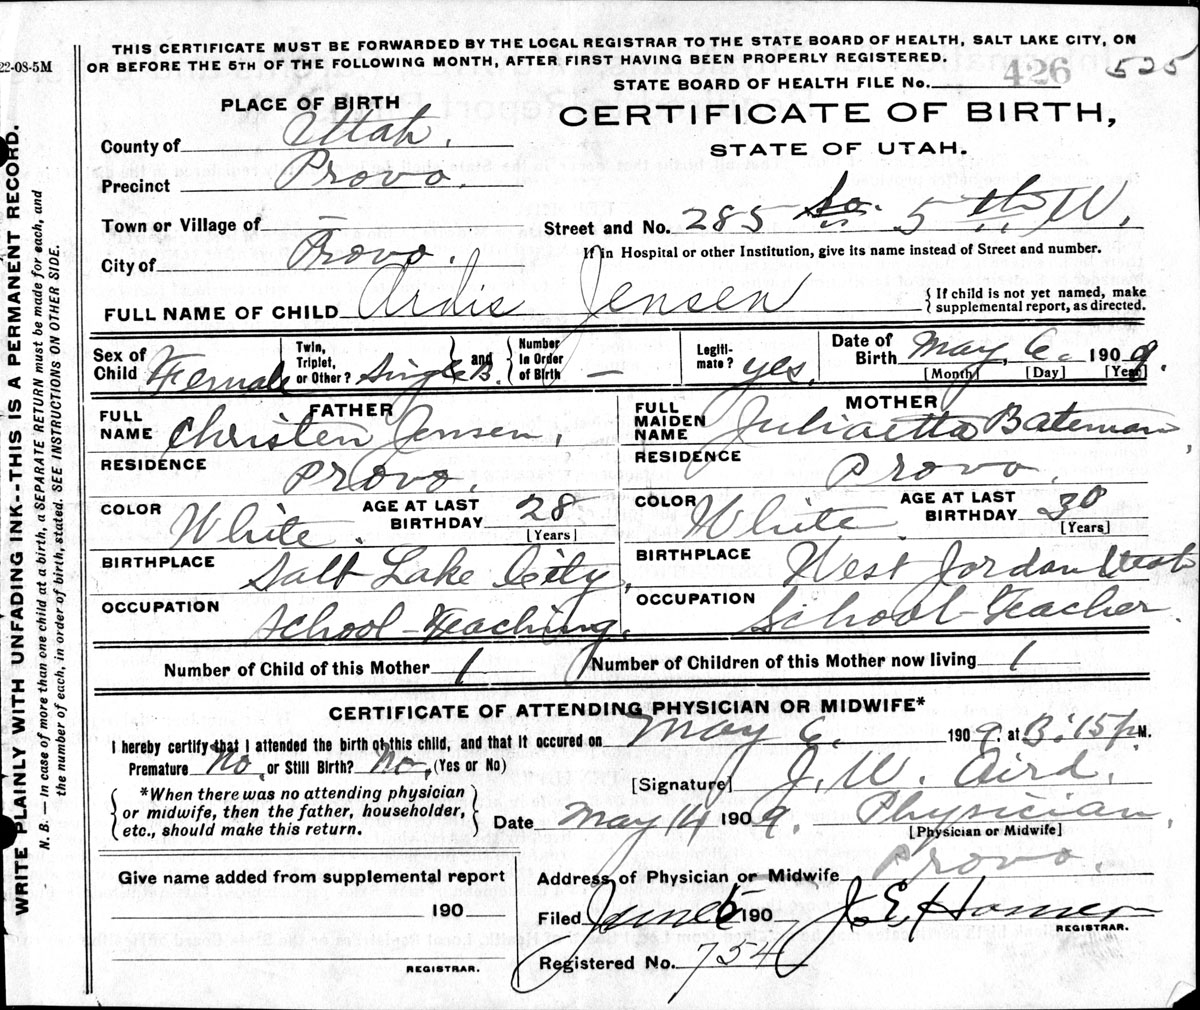 THIS CERTIFICATE MUST BE FORWARDED BY THE LOCAL REGISTRAR TO THE STATE BOARD OF HEALTH, SALT LAKE CITY, ON
OR BEFORE THE 5TH OF THE FOLLOWING MONTH, AFTER FIRST HAVING BEEN PROPERLY REGISTERED.
22-08-5M
STATE BOARD OF HEALTH FILE No. 426 525
PLACE OF BIRTH
CERTIFICATE OF BIRTH,
STATE OF UTAH.
County of Utah.
Precinct Provo.
Town or Village of —
Street and No. 285 So. 5th W.
City of Provo.
If in Hospital or other Institution, give its name instead of Street and number.
FULL NAME OF CHILD Ardis Jensen
{ If child is not yet named, make
supplemental report, as directed.
Sex of Child Female
Twin, Triplet, or Other? Single B. and Number in Order of Birth —
Legiti-mate? yes.
Date of Birth May 6. 1909.
[Month] [Day] [Year]
FATHER
FULL NAME Christen Jensen.
MOTHER
FULL MAIDEN NAME Juliaetta Bateman
RESIDENCE Provo.
RESIDENCE Provo
COLOR White. AGE AT LAST BIRTHDAY 28 [Years]
COLOR White AGE AT LAST BIRTHDAY 30 [Years]
BIRTHPLACE Salt Lake City.
BIRTHPLACE West Jordan Utah
OCCUPATION School-Teaching.
OCCUPATION School-Teacher
Number of Child of this Mother 1 Number of Children of this Mother now living 1
CERTIFICATE OF ATTENDING PHYSICIAN OR MIDWIFE*
I hereby certify that I attended the birth of this child, and that it occured on May 6. 1909. at 3:15 P M.
Premature No. or Still Birth? No. (Yes or No)
[Signature] J. W. Aird.
*When there was no attending physician
or midwife, then the father, householder,
etc., should make this return.
Date May 14 1909. Physician.
[Physician or Midwife]
Give name added from supplemental report
190
REGISTRAR.
Address of Physician or Midwife Provo.
Filed June 5 190 J. E. Homer
REGISTRAR.
Registered No. 754
WRITE PLAINLY WITH UNFADING INK--THIS IS A PERMANENT RECORD.
N. B. — In case of more than one child at a birth, a SEPARATE RETURN must be made for each, and
the number of each, in order of birth, stated. SEE INSTRUCTIONS ON OTHER SIDE.